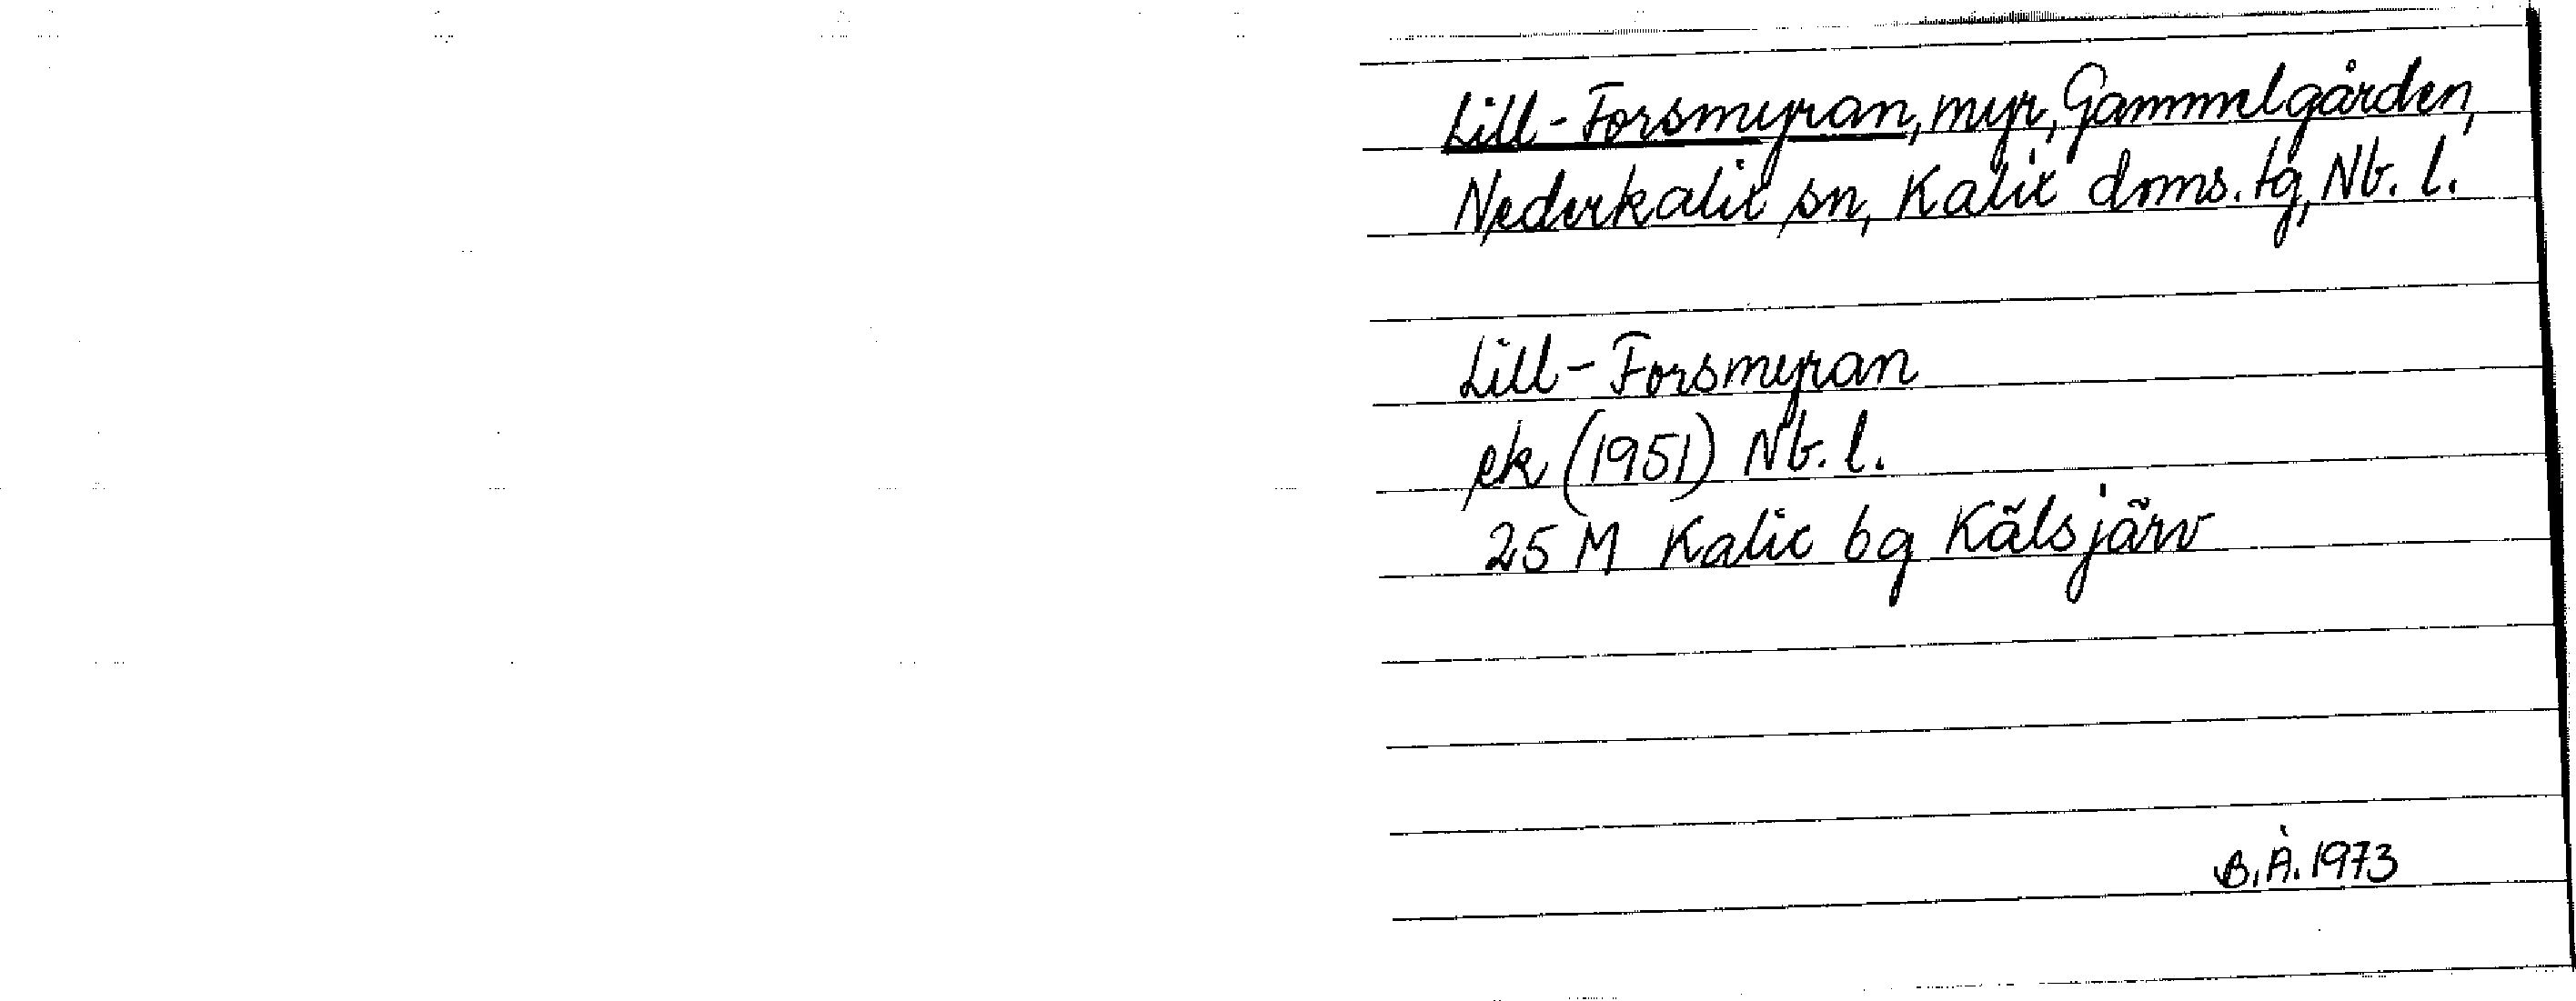 Lill-Forsmyran, myr, Gammelgården,
Nederkalix sn, Kalix doms. tg, Nb. l.
Lill-Forsmyran
ek (1951) Nb. l.
25 M Kalix bg Kälsjärv
B. Å. 1973